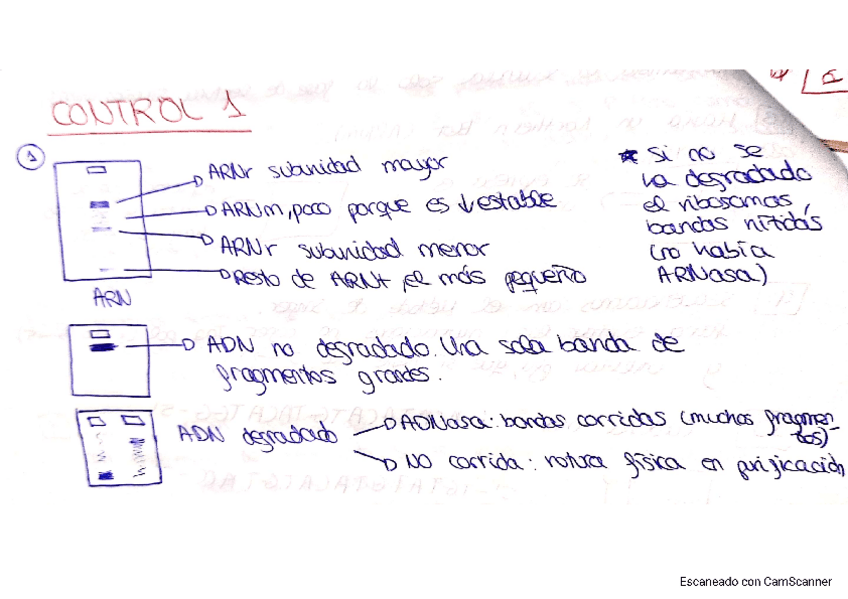 CONTROL 1
1
ARNr subunidad mayor
ARNm, poco porque es ↓estable
ARNr subunidad menor
Resto de ARNt, el más pequeño
ARN
* Si no se
ha degradado
el ribosomas,
bandas nítidas
(no había
ARNasa)
ADN no degradado. Una sola banda de
fragmentos grandes.
ADN degradado
ADNasa: bandas corridas (muchos fragmen-
tos)
NO corrida: rotura física en purificación
Escaneado con CamScanner